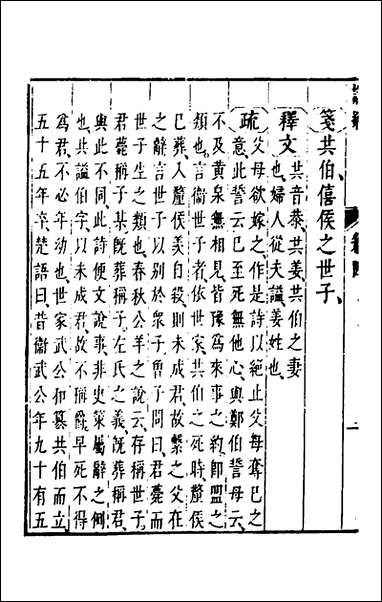 箋共伯僖侯之世子、
釋文
共音恭、共姜共伯之妻
也、婦人從夫諡姜姓也、
疏
父母欲嫁之、作是詩以絕止父母奪已之
意、此誓云、已至死無他心、與鄭伯誓母云、
不及黃泉無相見、皆豫爲來事之約、卽盟之
類也、言衞世子者、依世家、共伯之死時、釐侯
已葬、入釐侯羡自殺、則未成君、故繫之父在
之辭、言世子以別於衆子、曾子問曰、君薨而
世子生之類也、春秋公羊之說云、存稱世子、
君薨稱子某、旣葬稱子、左氏之義、旣葬稱君、
與此不同、此詩便文說事、非史策屬辭之例
也、共諡伯字、以未成君、故不稱爵、早死不得
爲君、不必年幼也、世家武公和簒共伯而立、
五十五年卒、楚語曰、昔衞武公年九十有五